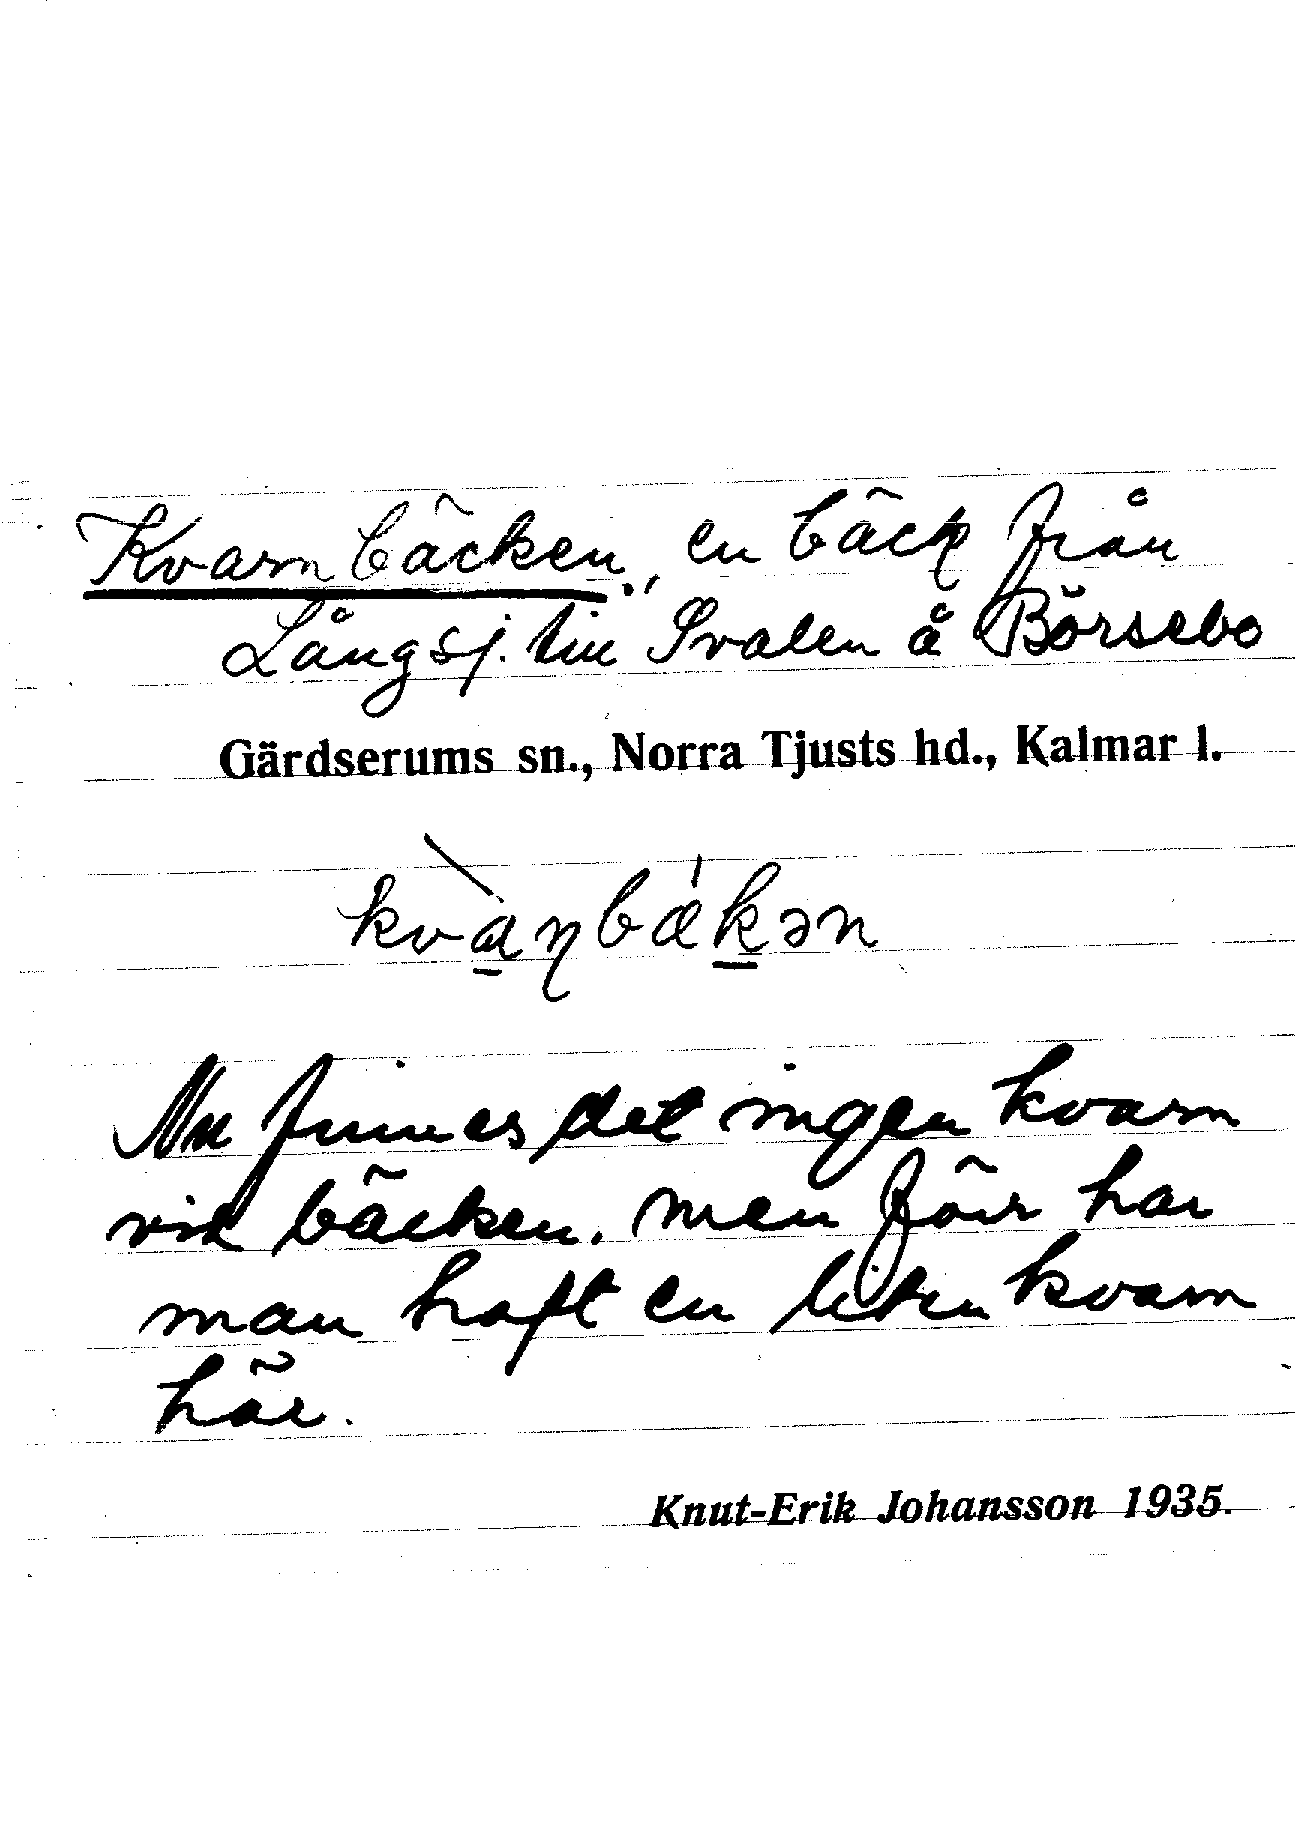 Kvarnbäcken, en bäck från
Långsj. till Svalen å Börsebo
Gärdserums sn., Norra Tjusts hd., Kalmar l.
kvàṉbækən
Nu finnes det ingen kvarn
vid bäcken. men förr har
man haft en liten kvarn
här.
Knut-Erik Johansson 1935.